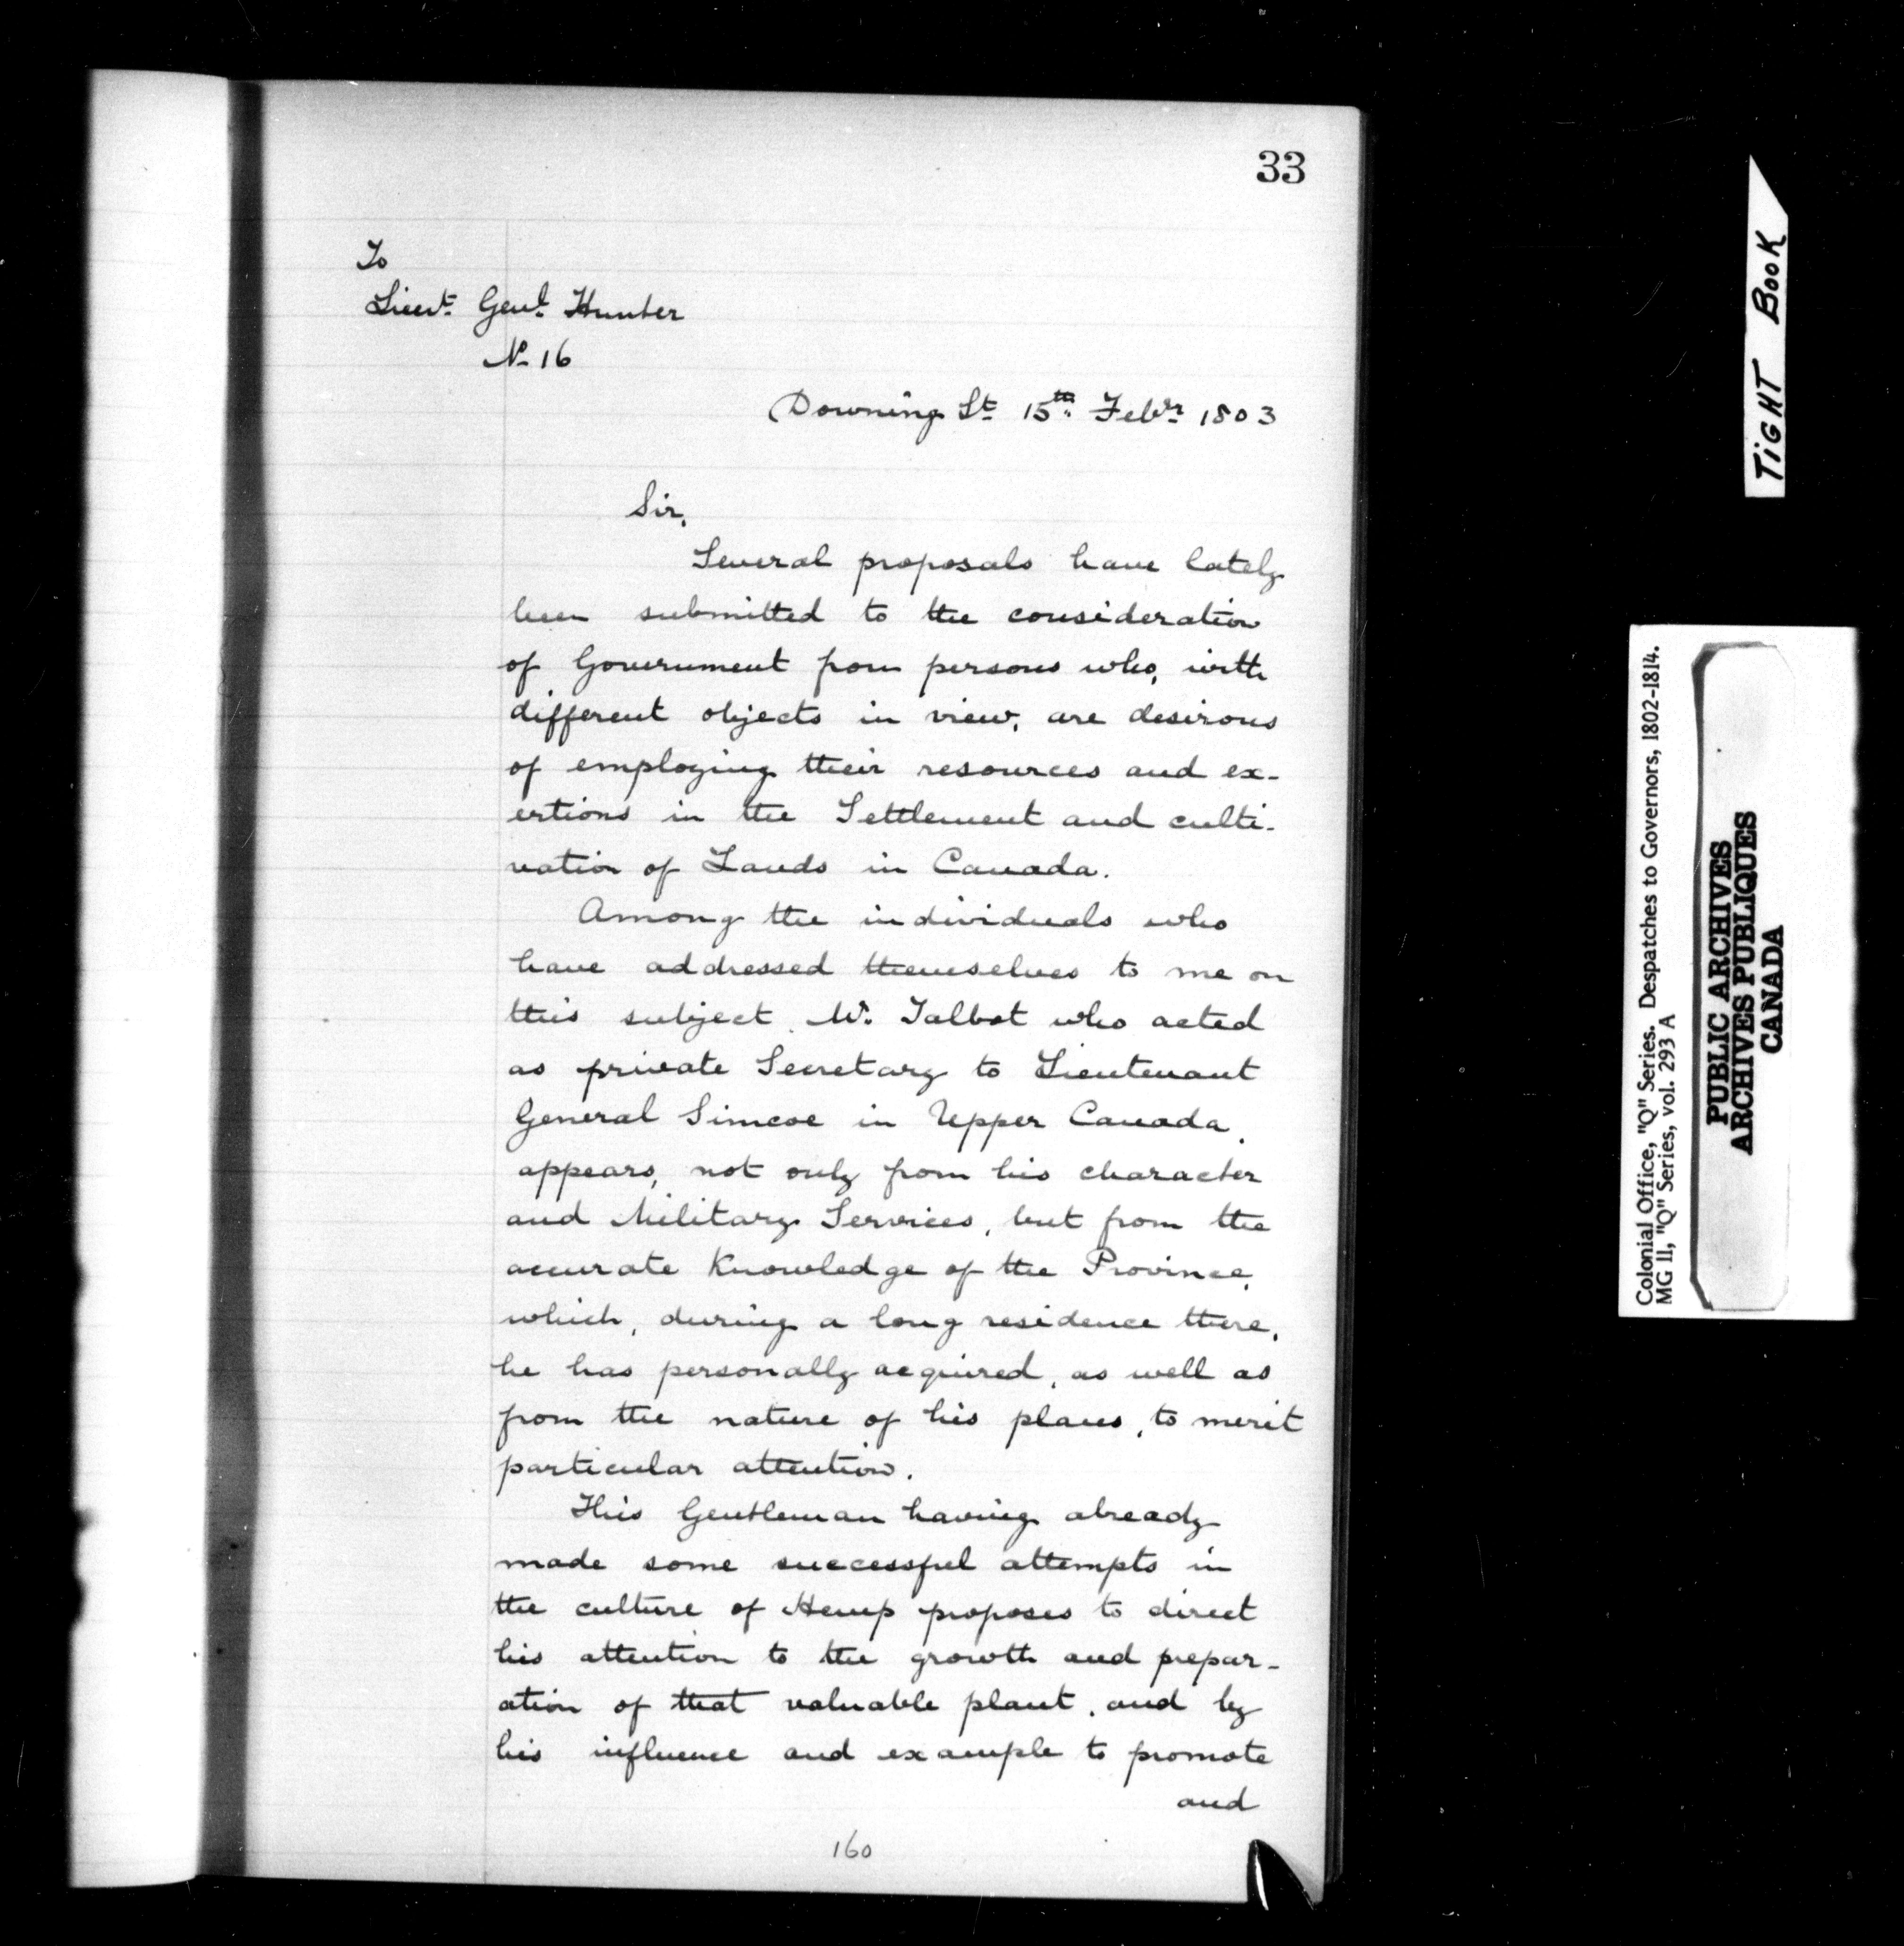 33
To
Lieut. Genl. Hunter
No 16
Downing St. 15th. Feby. 1803
Sir,
Several proposals have lately
been submitted to the consideration
of Government from persons who, with
different objects in view, are desirous
of employing their resources and ex-
ertions in the Settlement and culti-
vation of Lands in Canada.
Among the individuals who
have addressed themselves to me on
this subject, Mr. Talbot who acted
as private Secretary to Lieutenant
General Simcoe in Upper Canada,
appears, not only from his character
and Military Services, but from the
accurate Knowledge of the Province,
which, during a long residence there,
he has personally acquired, as well as
from the nature of his plans, to merit
particular attention.
This Gentleman having already
made some successful attempts in
the culture of Hemp proposes to direct
his attention to the growth and prepar-
ation of that valuable plant, and by
his influence and example to promote
and
160
TIGHT BOOK
Colonial Office, "Q" Series. Despatches to Governors, 1802-1814.
MG II, "Q" Series, vol. 293 A
PUBLIC ARCHIVES
ARCHIVES PUBLIQUES
CANADA